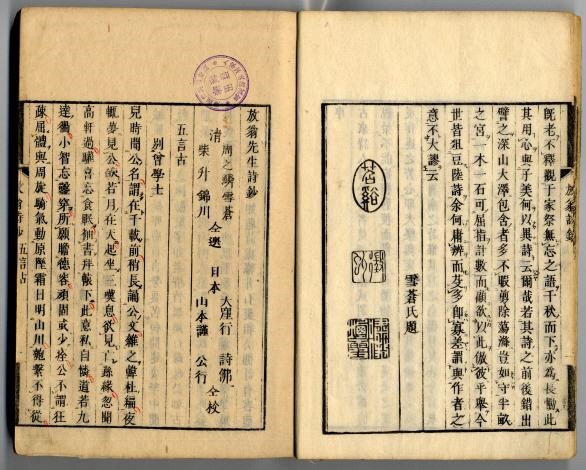 既老不釋觀于家祭無忘之語千秋而下亦為長慟此
其用心與子美何以異詩云爾哉若其詩之前後錯出
譬之深山大澤包含者多不暇剪除蕩滌豈如守半畝
之宮一木一石可屈指計數而顧欲以此傲彼乎舉今
世皆俎豆陸詩余何庸辨而芟多即寡差謂與作者之
意不大謬云
雪蒼氏題
苕谿
放翁詩鈔
放翁先生詩鈔
清 周之鱗雪蒼
柴升錦川 仝選
日本 大窪行 詩佛
山本謹 公行 仝校
五言古
別曾學士
兒時聞公名謂在千載前稍長誦公文雜之韓杜編夜
輒夢見公皎若月在天起坐三嘆息欲見亡緣忽聞
高軒過驩喜忘食眠袖書拜轅下此意私自憐道若九
達衢小智忘鑿穿所願瞻德容頑固或少痊公不謂狂
疎屈體與周旋騎氣動原隰霜日明山川匏繫不得從
五言古